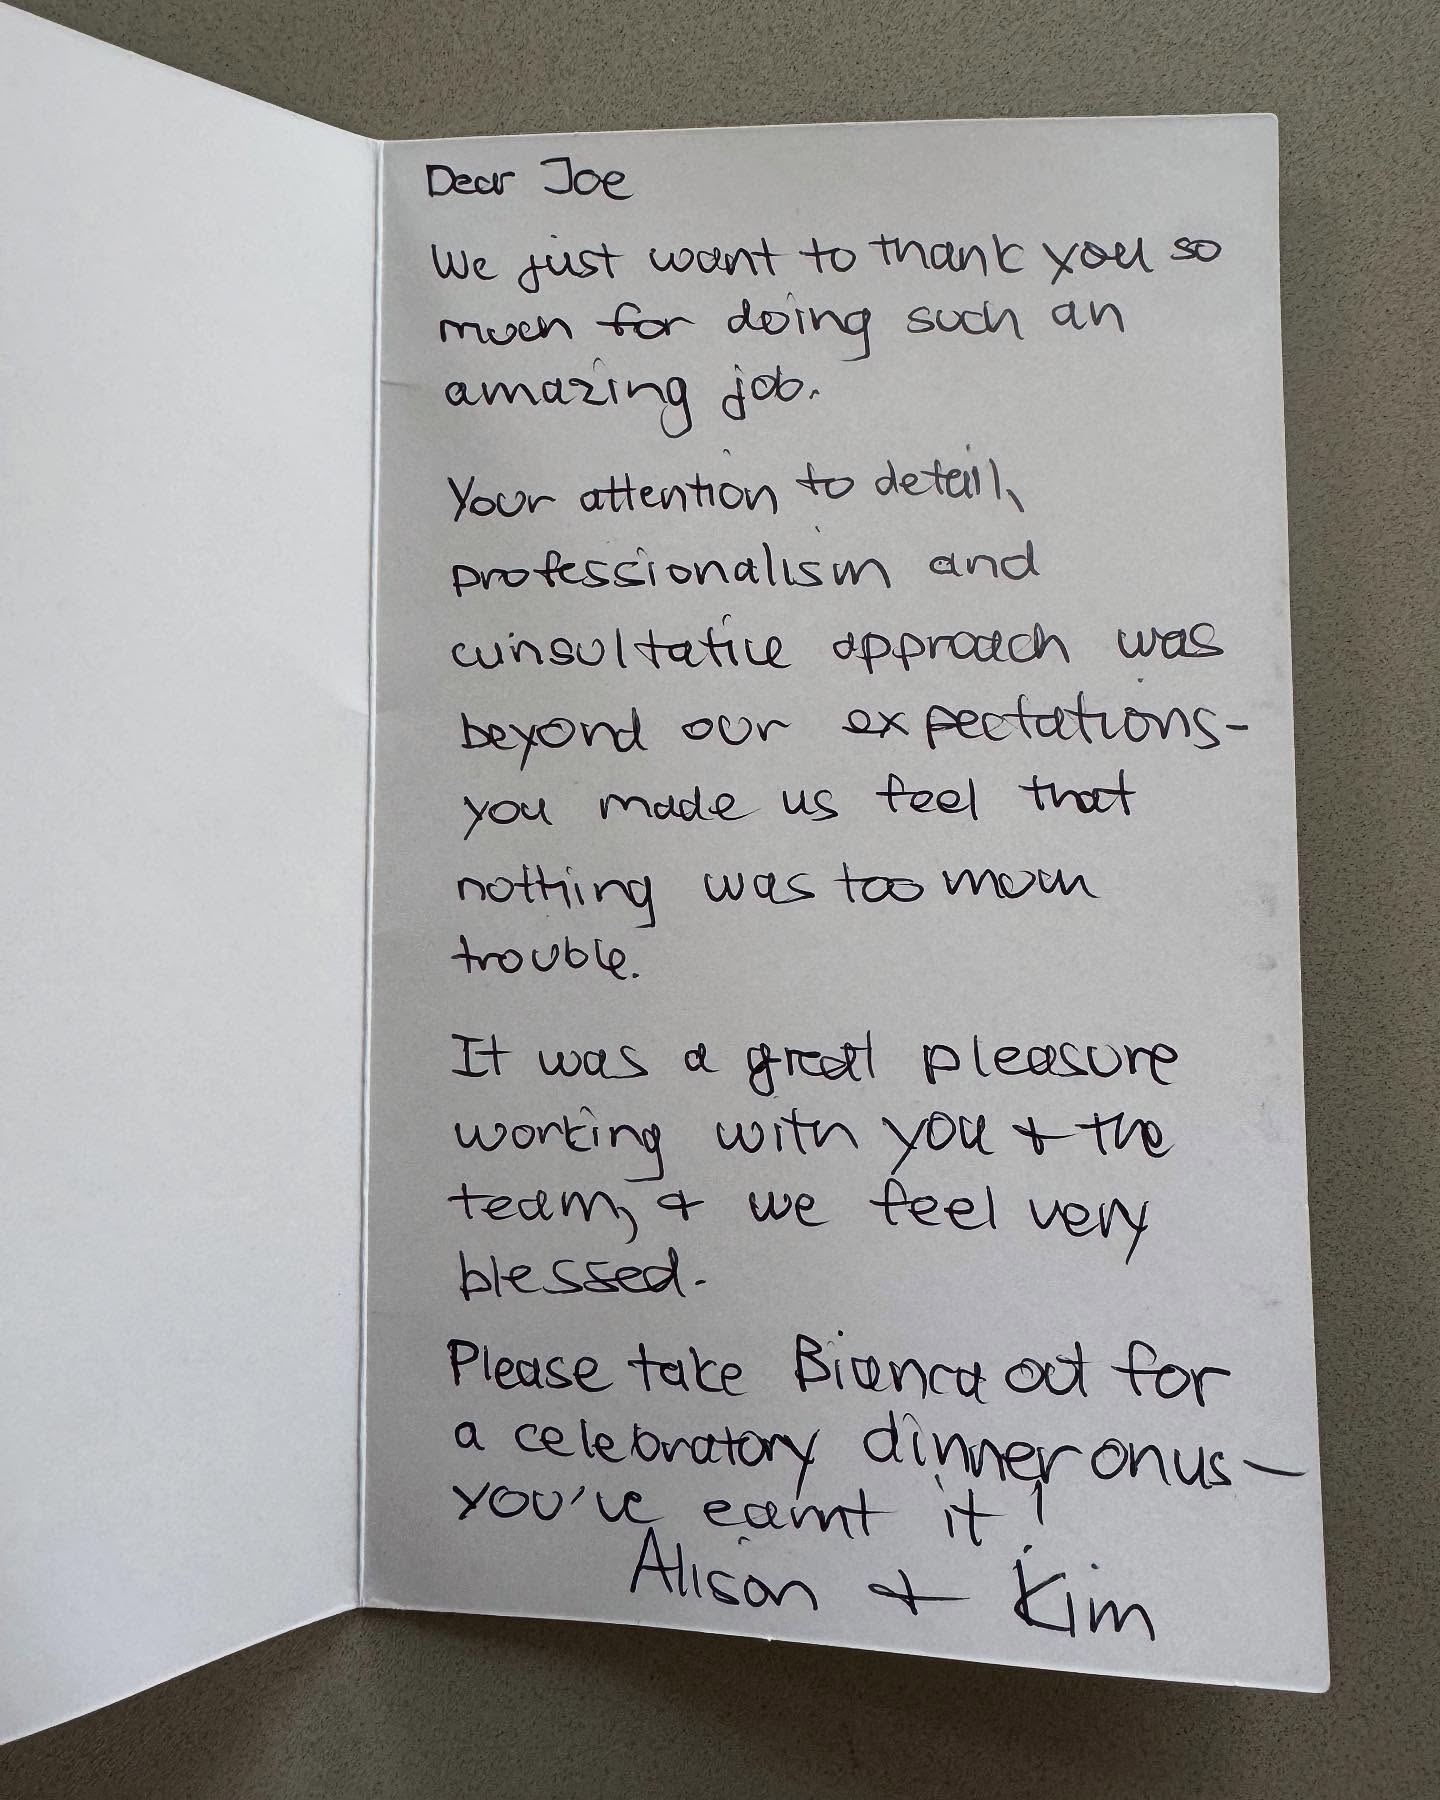 Dear Joe
We just want to thank you so
much for doing such an
amazing job.
Your attention to detail,
professionalism and
consultative approach was
beyond our expectations-
you made us feel that
nothing was too much
trouble.
It was a great pleasure
working with you + the
team, & we feel very
blessed.
Please take Bianca out for
a celebratory dinner on us-
you've earnt it!
Alison & Kim